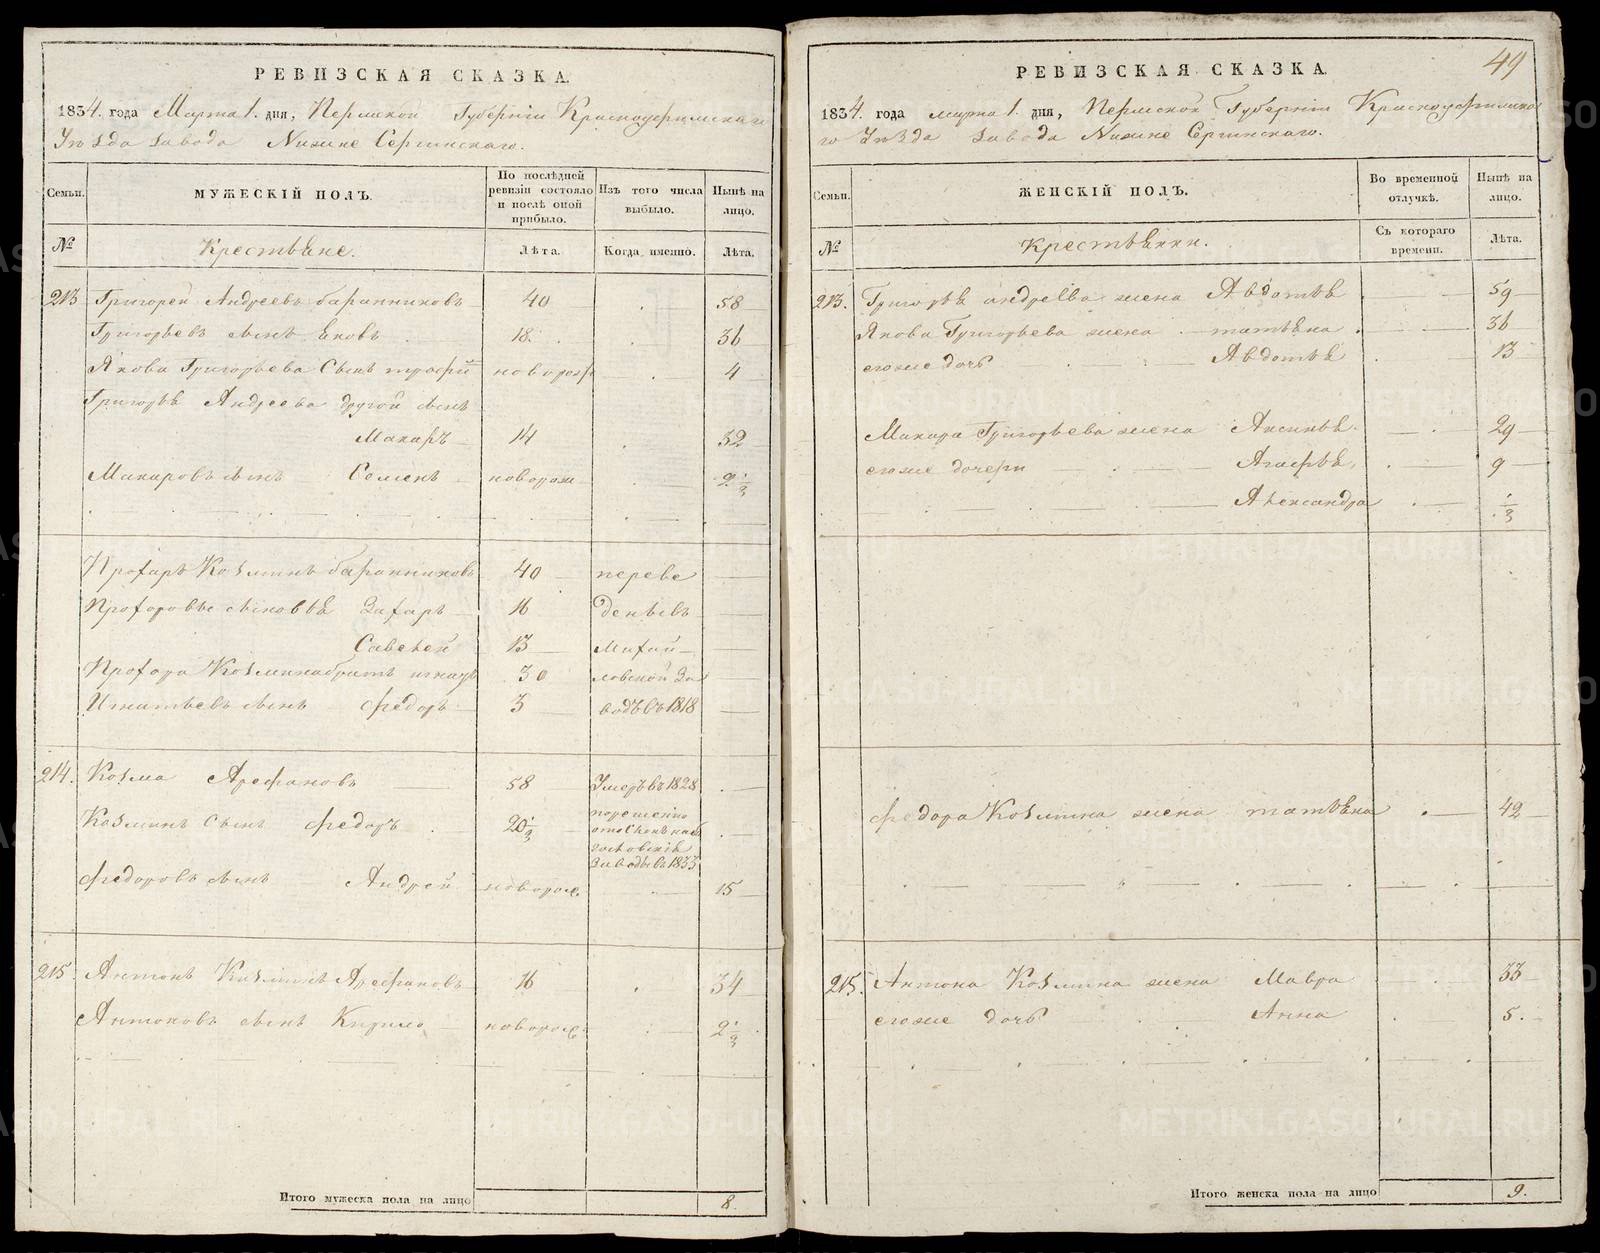 РЕВИЗСКАЯ СКАЗКА.
1834. года Марта 1. дня, Пермской Губерніи Красноуфимскаго
Уѣзда Завода Нижне Сергинскаго.
Семьи.
МУЖЕСКІЙ ПОЛЪ.
По послѣдней ревизіи состояло и послѣ оной прибыло.
Изъ того числа выбыло.
Нынѣ на лицо.
№
Крестьяне.
Лѣта.
Когда именно.
Лѣта.
213 Григорей Андреевъ баранниковъ 40 58
Григорьевъ сынъ Яковъ 18. 36
Якова Григорьева Сынъ трофи новорож 4
Григорья Андреева другой сынъ
Макаръ 14 32
Макаровъ сынъ Семенъ новорож 2 1/2
Прохоръ Козминъ баранниковъ 40 переве
Прохоровы сыновья Захаръ 16 денывъ
Савелей 13 Михай
Прохора Козмина братъ игнатъ 30 ловской За
Игнатьевъ сынъ федоръ 3 водъ въ 1818
214. Козма Арефановъ 58 Умеръ въ 1828
Козминъ Сынъ федоръ 20 1/2
Заводы въ 1833
федоровъ сынъ Андрей новорож. 15
215. Антонъ Козминъ Арефановъ 16 34
Антоновъ сынъ Кирило новорож. 2 1/2
Итого мужеска пола на лицо 8.
49
РЕВИЗСКАЯ СКАЗКА.
1834. года марта 1. дня, Пермской Губерніи Красноуфимска
го Уѣзда Завода Нижне Сергинскаго.
Семьи.
ЖЕНСКІЙ ПОЛЪ.
Во временной отлучкѣ.
Нынѣ на лицо.
№
Крестьянки.
Съ котораго времени.
Лѣта.
213. Григорья андреева жена Авдотья 59
Якова Григорьева жена татьяна 36
егоже дочь Авдотья 13
Макара Григорьева жена Аксинья 29
егоже дочери Агафья 9
Александра 1/2
федора Козмина жена татьяна 42
215. Антона Козмина жена Мавра 33
егоже дочь Анна 5.
Итого женска пола на лицо 9.
METRIKI.GASO-URAL.RU